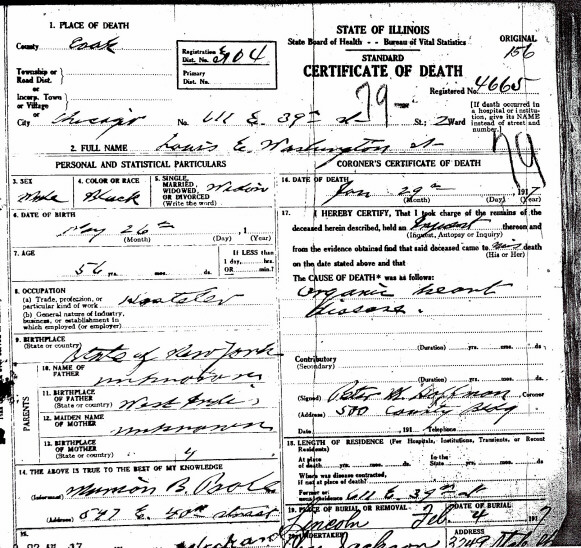 1. PLACE OF DEATH
County Cook
Registration Dist. No. 3104
Township or Road Dist.
or
Incorp. Town or Village
or
City Chicago No. 611 E. 39th St St.; 2 Ward
Primary Dist. No.
STATE OF ILLINOIS
State Board of Health - - Bureau of Vital Statistics
ORIGINAL
156
STANDARD
CERTIFICATE OF DEATH
Registered No. 4665
79
[If death occurred in a hospital or institution, give its NAME instead of street and number.]
79
2. FULL NAME Louis E. Washington
PERSONAL AND STATISTICAL PARTICULARS
3. SEX
Male
4. COLOR OR RACE
Black
5. SINGLE, MARRIED, WIDOWED, OR DIVORCED
(Write the word)
6. DATE OF BIRTH
May 26th , 1
(Month) (Day) (Year)
7. AGE
56 yrs. mos. ds.
If LESS than
1 day, hrs.
OR min.?
8. OCCUPATION
(a) Trade, profession, or particular kind of work
(b) General nature of industry, business, or establishment in which employed (or employer)
9. BIRTHPLACE
(State or country) State of New York
PARENTS
10. NAME OF FATHER unknown
11. BIRTHPLACE OF FATHER
(State or country) West Indies
12. MAIDEN NAME OF MOTHER unknown
13. BIRTHPLACE OF MOTHER
(State or country)
14. THE ABOVE IS TRUE TO THE BEST OF MY KNOWLEDGE
(Informant) B.
(Address) 547 E. 40th street
15.
CORONER'S CERTIFICATE OF DEATH
16. DATE OF DEATH
Jan 29th 1917
(Month) (Day) (Year)
17. I HEREBY CERTIFY, That I took charge of the remains of the
deceased herein described, held an Inquest thereon and
(Inquest, Autopsy or Inquiry)
from the evidence obtained find that said deceased came to his death
(His or Her)
on the date stated above and that
The CAUSE OF DEATH* was as follows:
Organic heart
disease.
(Duration) yrs. mos. ds
Contributory
(Secondary)
(Duration) yrs. mos. ds.
(Signed) Peter M. Hoffman, Coroner
(Address) 500 County Bldg
Date 191 Telephone
18. LENGTH OF RESIDENCE (For Hospitals, Institutions, Transients, or Recent Residents)
At place of death yrs. mos. ds. In the State yrs. mos. ds.
Where was disease contracted, if not at place of death?
Former or usual residence 611 E. 39th St
19. PLACE OF BURIAL OR REMOVAL
Lincoln
DATE OF BURIAL
Feb. 4 1917
20. UNDERTAKER
Jackson
ADDRESS
State